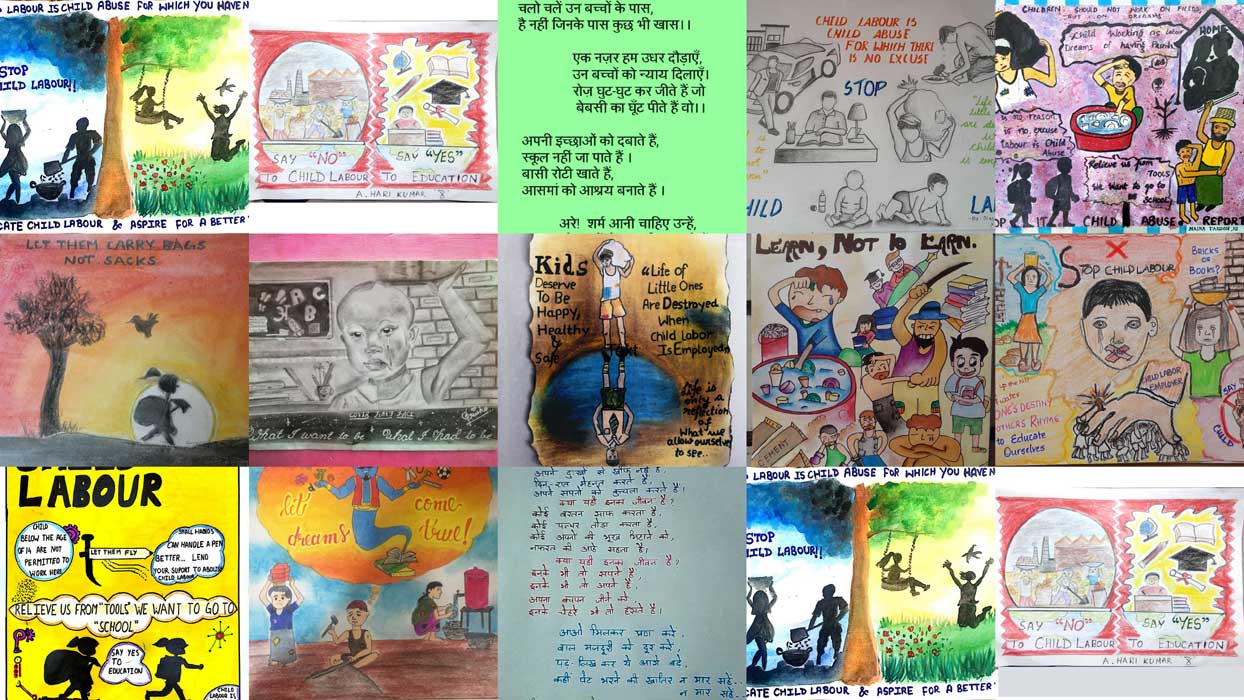 LABOUR IS CHILD ABUSE FOR WHICH YOU HAVEN
STOP
ILD LABOUR!!
CATE CHILD LABOUR & ASPIRE FOR A BETTER
SAY "NO"
TO CHILD LABOUR
SAY "YES"
TO EDUCATION
A. HARI KUMAR '8'
चलो चलें उन बच्चों के पास,
है नहीं जिनके पास कुछ भी खास।।
एक नज़र हम उधर दौड़ाएँ,
उन बच्चों को न्याय दिलाएँ।
रोज़ घुट-घुट कर जीते हैं जो
बेबसी का घूँट पीते हैं वो।।
अपनी इच्छाओं को दबाते हैं,
स्कूल नहीं जा पाते हैं ।
बासी रोटी खाते हैं,
आसमां को आश्रय बनाते हैं ।
अरे! शर्म आनी चाहिए उन्हें,
CHILD LABOUR IS
CHILD ABUSE
FOR WHICH THERE
IS NO EXCUSE
STOP
HILD
LA
CHILDREN SHOULD NOT WORK ON FIELDS,
BUT ON DREAMS
Child Working as labor
Dreams of having Parents
HOME
is no reason
is no excuse
labour is Child
Abuse
Relieve us from
TOOLS
We want to go to
School
OP IT
CHILD ABUSE
REPORT
LET THEM CARRY BAGS
NOT SACKS.
What I want to be
What I had to be
Kids
Deserve
To Be
Happy,
Healthy
&
Safe
"Life of
Little Ones
Are Destroyed
When
Child Labor
Is Employed"
Life is
only a
reflection
of
What we
allow ourselves
to see..
LEARN, NOT TO EARN.
CEMENT
STOP CHILD LABOUR
BRICKS
OR
BOOKS?
CHILD LABOR
EMPLOYER
ONE'S DESTINY
OTHERS RHYME
to Educate
Ourselves
SAY
CHILD
LABOUR
CHILD
BELOW THE AGE
OF 14 ARE NOT
PERMITTED TO
WORK HERE
LET THEM FLY
SMALL HANDS
CAN HANDLE A PEN
BETTER... LEND
YOUR SUPORT TO ABOLISH
CHILD LABOUR
RELIEVE US FROM "TOOLS" WE WANT TO GO TO
"SCHOOL"
SAY YES
TO
EDUCATION
CHILD
LABOUR IS
let
dreams
come-
true!
दिन-रात मेहनत करते हैं,
अपने सपनों को कुचला करते हैं।
क्या यही इनका जीवन है?
कोई बरतन साफ करता है,
कोई पत्थर तोड़ा करता है,
कोई अपनों की भूख मिटाने को,
क्या यही इनका जीवन है?
इनके भी तो सपने हैं,
इनके भी तो अपने हैं,
अपना बचपन जीने को,
इनके चेहरे भी तो हँसते हैं।
आओ मिलकर प्रण करें,
बाल मजदूरी को दूर करें,
पढ़-लिख कर ये आगे बढ़ें,
कहीं पेट भरने की खातिर न मार सहें..
न मार सहें..
LABOUR IS CHILD ABUSE FOR WHICH YOU HAVEN
STOP
ILD LABOUR!!
CATE CHILD LABOUR & ASPIRE FOR A BETTER
SAY "NO"
TO CHILD LABOUR
SAY "YES"
TO EDUCATION
A. HARI KUMAR '8'